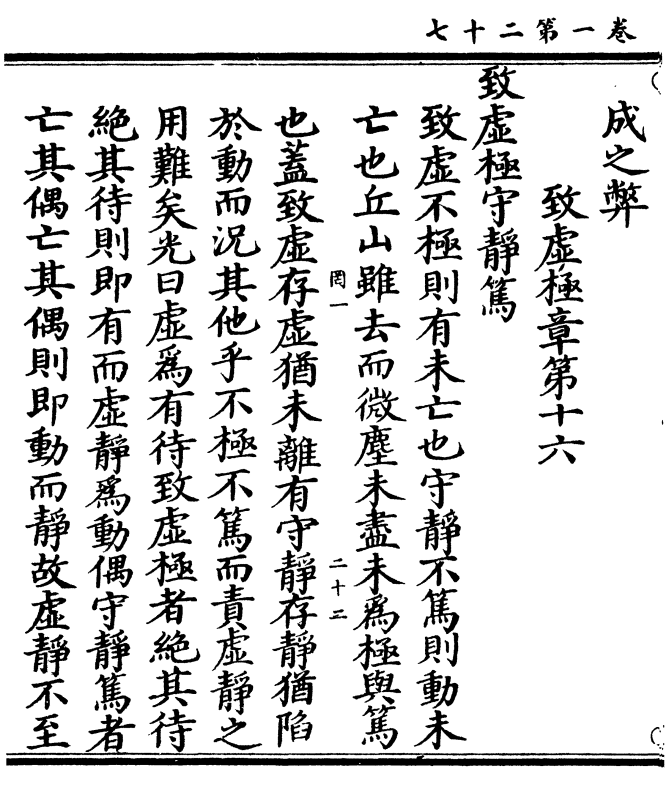 卷一第二十七
成之弊
致虛極章第十六
致虛極守靜篤
致虛不極則有未亡也守靜不篤則動未
亡也丘山雖去而微塵未盡未爲極與篤
罔一
二十二
也蓋致虛存虛猶未離有守靜存靜猶陷
於動而況其他乎不極不篤而責虛靜之
用難矣光曰虛爲有待致虛極者絶其待
絶其待則即有而虛靜爲動偶守靜篤者
亡其偶亡其偶則即動而靜故虛靜不至